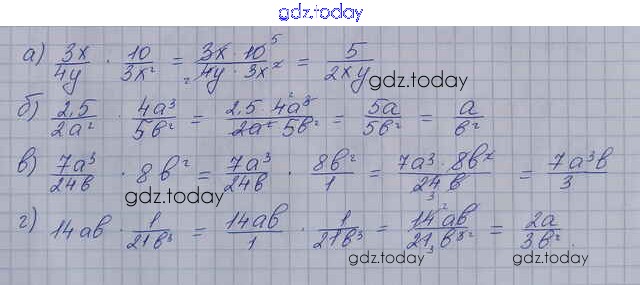 gdz.today
а) 3x/4y · 10/3x² = 3x · 10 5/2 4y · 3x² = 5/2xy
gdz.today
б) 2,5/2a² · 4a³/5b² = 2,5 · 4 2 a³/2a² 5b² = 5a/5b² = a/b²
в) 7a³/24b · 8b² = 7a³/24b · 8b²/1 = 7a³ · 8b²/24 3 b = 7a³b/3
gdz.today
г) 14ab · 1/21b³ = 14ab/1 · 1/21b³ = 14 2 ab/21 3 b³ 2 = 2a/3b²
gdz.today gdz.today